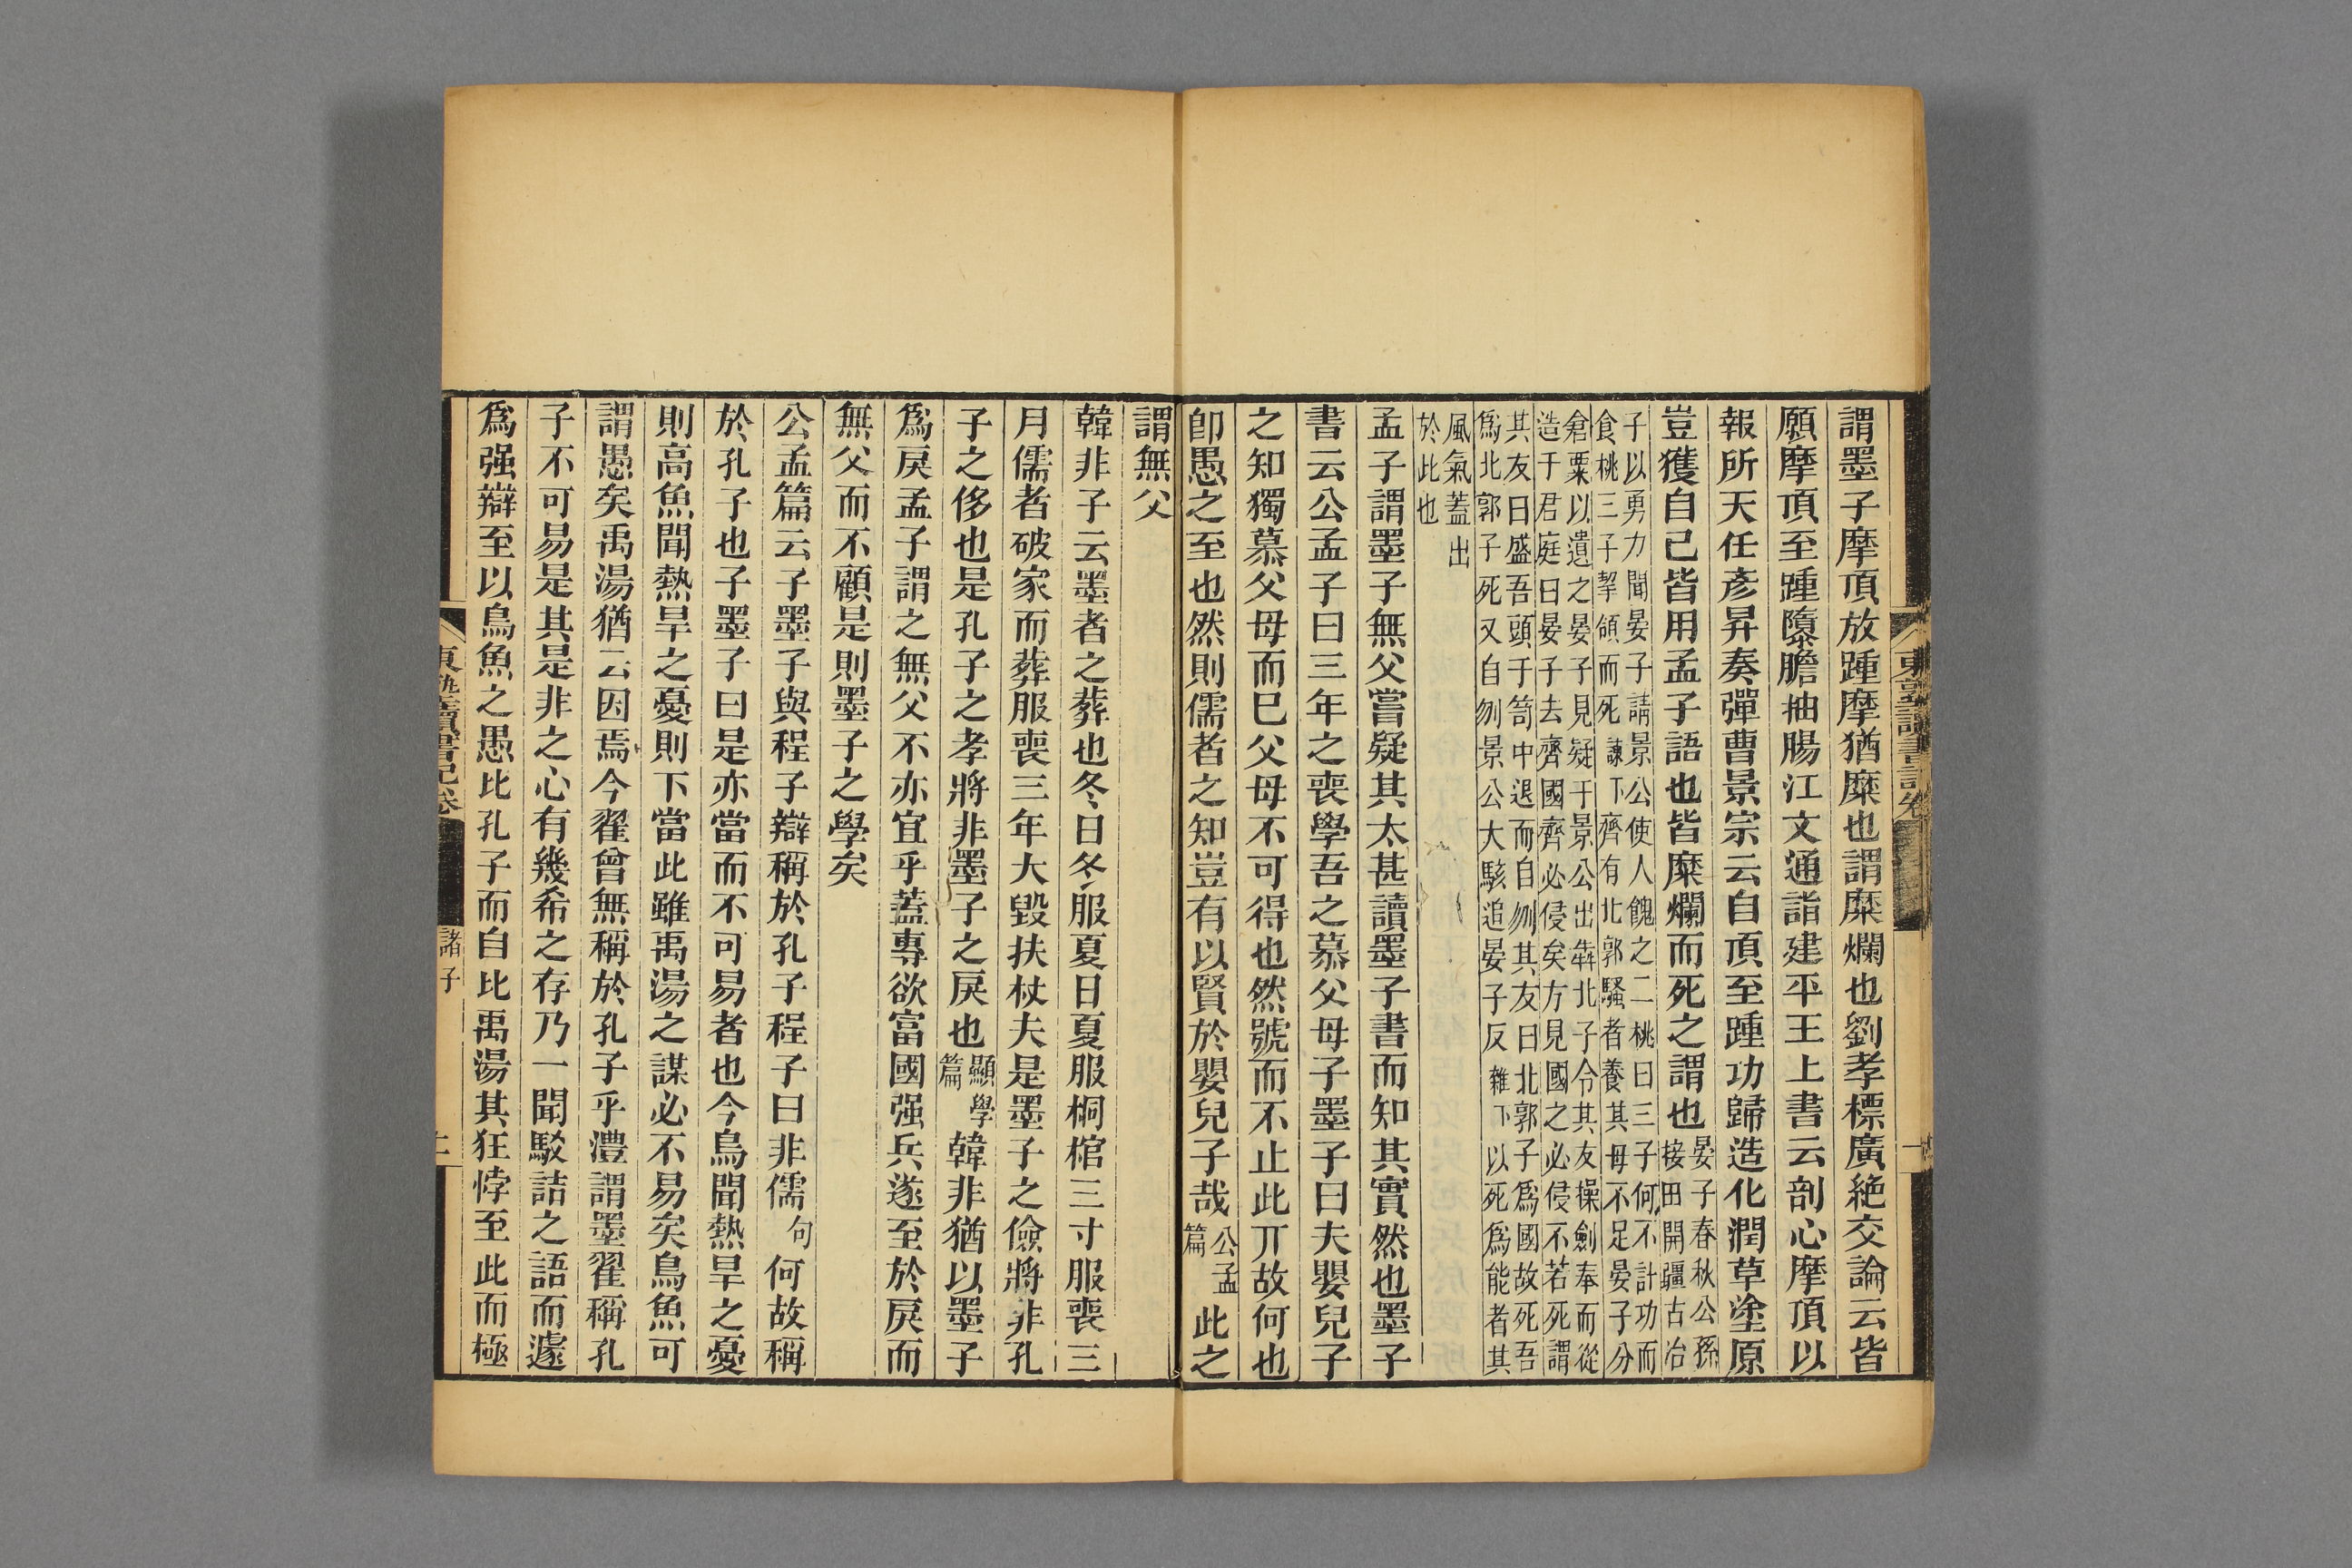 謂墨子摩頂放踵摩猶糜也謂糜爛也劉孝標廣絕交論云皆
願摩頂至踵隳膽抽腸江文通詣建平王上書云剖心摩頂以
報所天任彥昇奏彈曹景宗云自頂至踵功歸造化潤草塗原
豈獲自已皆用孟子語也皆糜爛而死之謂也晏子春秋公孫
接田開疆古冶
子以勇力聞晏子請景公使人餽之二桃曰三子何不計功而
食桃三子挈領而死諫下齊有北郭騷者養其母不足晏子分
倉粟以遺之晏子見疑于景公出犇北子令其友操劍奉而從
造于君庭曰晏子去齊國齊必侵矣方見國之必侵不若死謂
其友曰盛吾頭于笥中退而自刎其友曰北郭子爲國故死吾
爲北郭子死又自刎景公大駭追晏子反雜下以死爲能者其
風氣蓋出
於此也
孟子謂墨子無父嘗疑其太甚讀墨子書而知其實然也墨子
書云公孟子曰三年之喪學吾之慕父母子墨子曰夫嬰兒子
之知獨慕父母而巳父母不可得也然號而不止此丌故何也
卽愚之至也然則儒者之知豈有以賢於嬰兒子哉公孟
篇此之
謂無父
韓非子云墨者之葬也冬日冬服夏日夏服桐棺三寸服喪三
月儒者破家而葬服喪三年大毀扶杖夫是墨子之儉將非孔
子之侈也是孔子之孝將非墨子之戾也顯學
篇韓非猶以墨子
爲戾孟子謂之無父不亦宜乎蓋專欲富國强兵遂至於戾而
無父而不顧是則墨子之學矣
公孟篇云子墨子與程子辯稱於孔子程子曰非儒句何故稱
於孔子也子墨子曰是亦當而不可易者也今鳥聞熱旱之憂
則高魚聞熱旱之憂則下當此雖禹湯之謀必不易矣鳥魚可
謂愚矣禹湯猶云因焉今翟曾無稱於孔子乎澧謂墨翟稱孔
子不可易是其是非之心有幾希之存乃一聞駁詰之語而遽
爲强辯至以鳥魚之愚比孔子而自比禹湯其狂悖至此而極
東塾讀書記卷
諸子